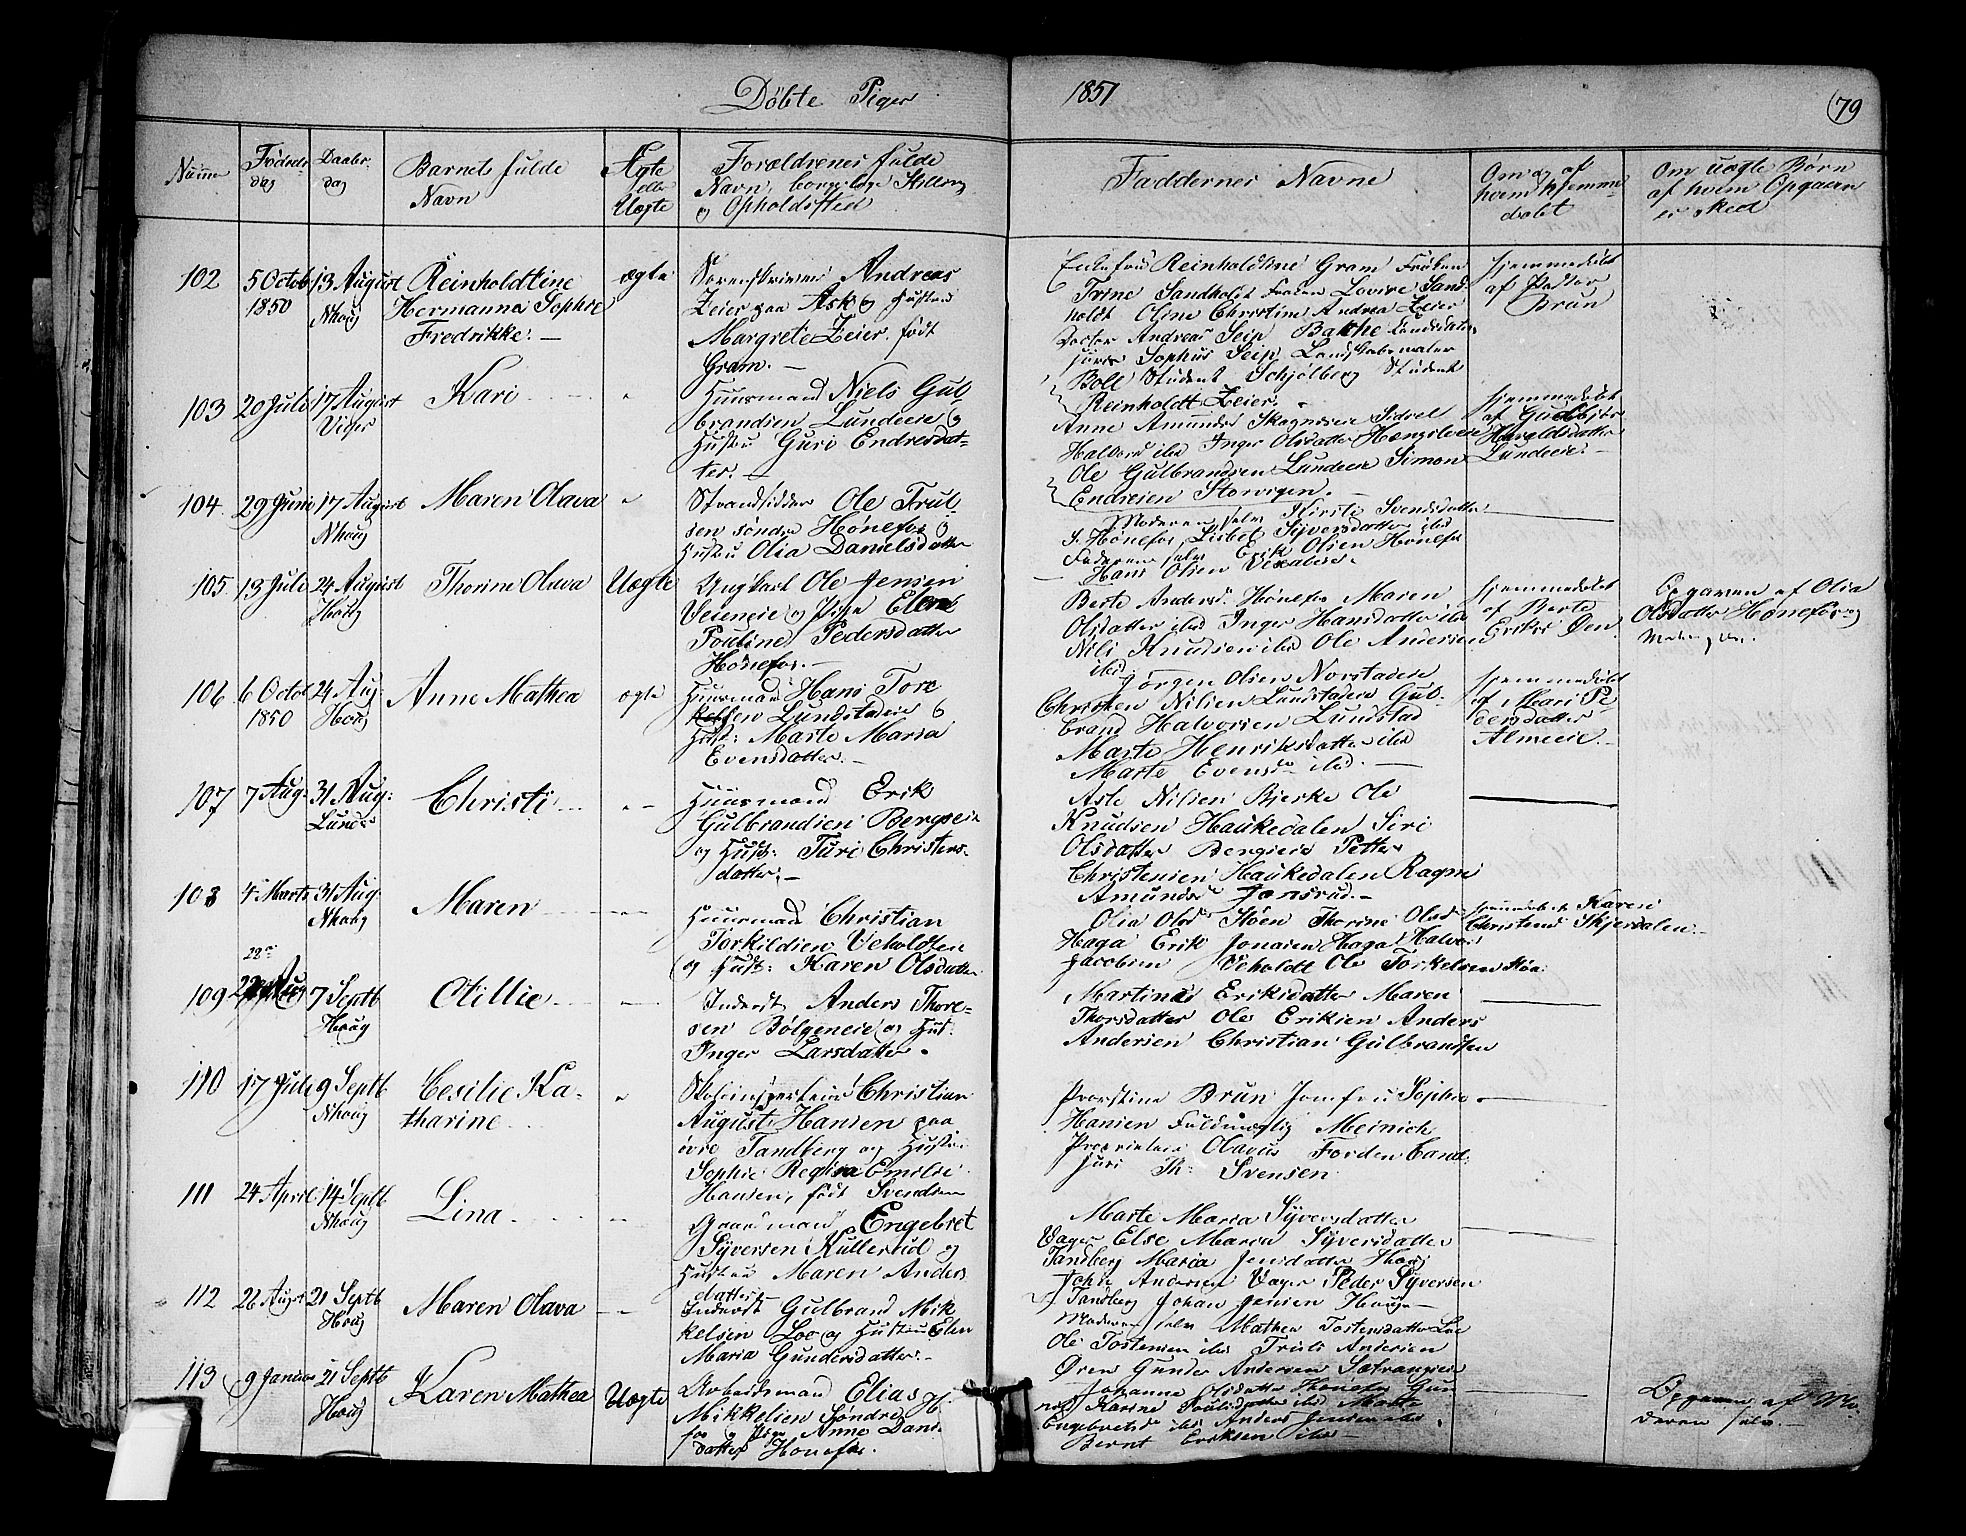 Döbte Piger
1851
79
Numer
Födsels dag
Daabs dag
Barnets fulde Navn
Ægte eller Uægte
Forældrenes fulde Navn, borgelige Stilling og Opholdssted
Faddernes Navne
Om og af hvem hjemmedøbt
Om uægte Børn af hvem Opgaven er skeet
102
5 Octob 1850
13 August Nhoug
Reinholdtine
Hermanna Sophie
Fredrikke. —
ægte
Sorenskriver Andreas
Zeier paa Ask og Hustru
Margrete Zeier, født
Gram. —
Enkefru Reinholdtine Gram Frøken
Trine Sandholdt Frøken Lovise Sand-
holdt Oline Christine Andrea Zeier
Doctor Andreas Seip Bakke
Sophus Seip
Boll Student Schjölberg Student
Reinholdt Zeier. —
hjemmedøbt
af Pastor
Brun
103
20 Juli
17 August Viger
Kari
"
Huusmand Niels Gul
brandsen Lundeie og
Hustru Guri Endresdat-
ter. —
Anne Amunds Skognseie Sidsel
Halvors ibd Inger Olsdatter Hængsleeie
Ole Gulbrandsen Lundeie Simon
Endresen Storvigen. —
hjemmedøbt
af Gulbjör
Haraldsdatter
Lundeeie. —
104
29 Juni
17 August Nhoug
Maren Olava
"
Strandsidder Ole Trul
sen söndre Hönefos og
Hustru Olia Danielsdatter
Moderen selv Kirsti Svendsdatter
S. Hönefos Lisbet Syversdatter ibd
Faderen selv Erik Olsen Hönefos
Hans Olsen Vexaleie.
105
13 Juli
24 August Houg
Thorine Olava
Uægte
Ungkarl Ole Jensen
Veieneie og Pige Elen
Pouline Pedersdatter
Hönefos. —
Berte Andersd. Hönefos Maren
Olsdatter ibd Inger Hansdatter ibd
Nils Knudsen ibd Ole Andersen
ibd
hjemmedøbt
af Berte
Eriks Øen
Opgaven af Olia
Olsdatter Hönefos og
106
6 Octob 1850
24 Aug: Houg
Anne Mathea
ægte
Huusmand Hans Tore
sen Lundstadeie og
Hust: Marte Maria
Evensdatter. —
Jörgen Olsen Norstadeie
Christen Nilsen Lundstadeie Gul-
brand Halvorsen Lundstad
Marte Henriksdatter ibd
Marte Evensdr ibd. —
hjemmedøbt
af Mari Pe
dersdatter
Almeeie. —
107
7 Aug:
31 Aug: Lunder
Christi
"
Huusmand Erik
Gulbrandsen Bergseie
og Hust: Turi Christens-
datter. —
Asle Nilsen Bjerke Ole
Knudsen Haukedalen Siri
Olsdatter Bergseie Petter
Christensen Haukedalen Ragni
Amundsdr Jonsrud. —
108
4 Marts
31 Aug Nhoug
Maren
"
Huusmand Christian
Torkildsen Veholdteie
og Hust: Karen Olsdatter
Olia Olsd Höen Thorine Olsd
Haga Erik Jonasen Haga Halvor
Jacobsen Veholdt Ole Torkelsen Höa
hjemmedøbt af Karen
Christens Skjerdalen. —
109
28de
7 Septb Houg
Lillie
"
Inderst Anders Thore-
sen Bölgeneie og Hust:
Inger Larsdatter.
Martinus Eriksdatter Maren
Thorsdatter Ole Eriksen Anders
Andersen Christian Gulbrandsen
110
17 Juli
9 Septb Nhoug
Cesilie Ka-
tharine
"
Skoleinspecteur Christian
August Hansen paa
övre Tandberg og Hustru
Sophie Regina Emilie
Hansen, født Svendsen
Provstine Brun Jomfru Sophie
Hansen Fuldmægtig Meinich
Proprietair Olavus Forden Cand:
Juri Th: Svensen
111
24 April
14 Septb Nhoug
Lina
"
Gaardmand Engebret
Syversen Kullerud og
Hustru Maren Anders
datter. —
Marte Maria Syversdatter
Vager Else Maria Syversdatter
Tandberg Maria Jensdatter Houg
Andersen Vager Peder Syversen
Tandberg Johan Jensen Houg —
112
26 Augst
21 Septb Houg
Maren Olava
"
Inderst Gulbrand Mik
kelsen Loe og Hustru Elen
Maria Gundersdatter. —
Moderen selv Mathea Tostensdatter Loe
Ole Tostensen ibd Andersen
Øren Gunder Andersen
113
9 Januar
21 Septb Houg
Karen Mathea
Uægte
Arbeidsmand Elias
Mikkelsen Söndre H.
fos og Pige Anne Dani
datter Hönefos.
Johanne Olsdatter Hönefos Gun
Karine Poulsdatter ibd Marte
Engebretsd ibd Anders Jensen ibd
Bernt Eriksen ibd
Opgaven af Mo-
deren selv. —